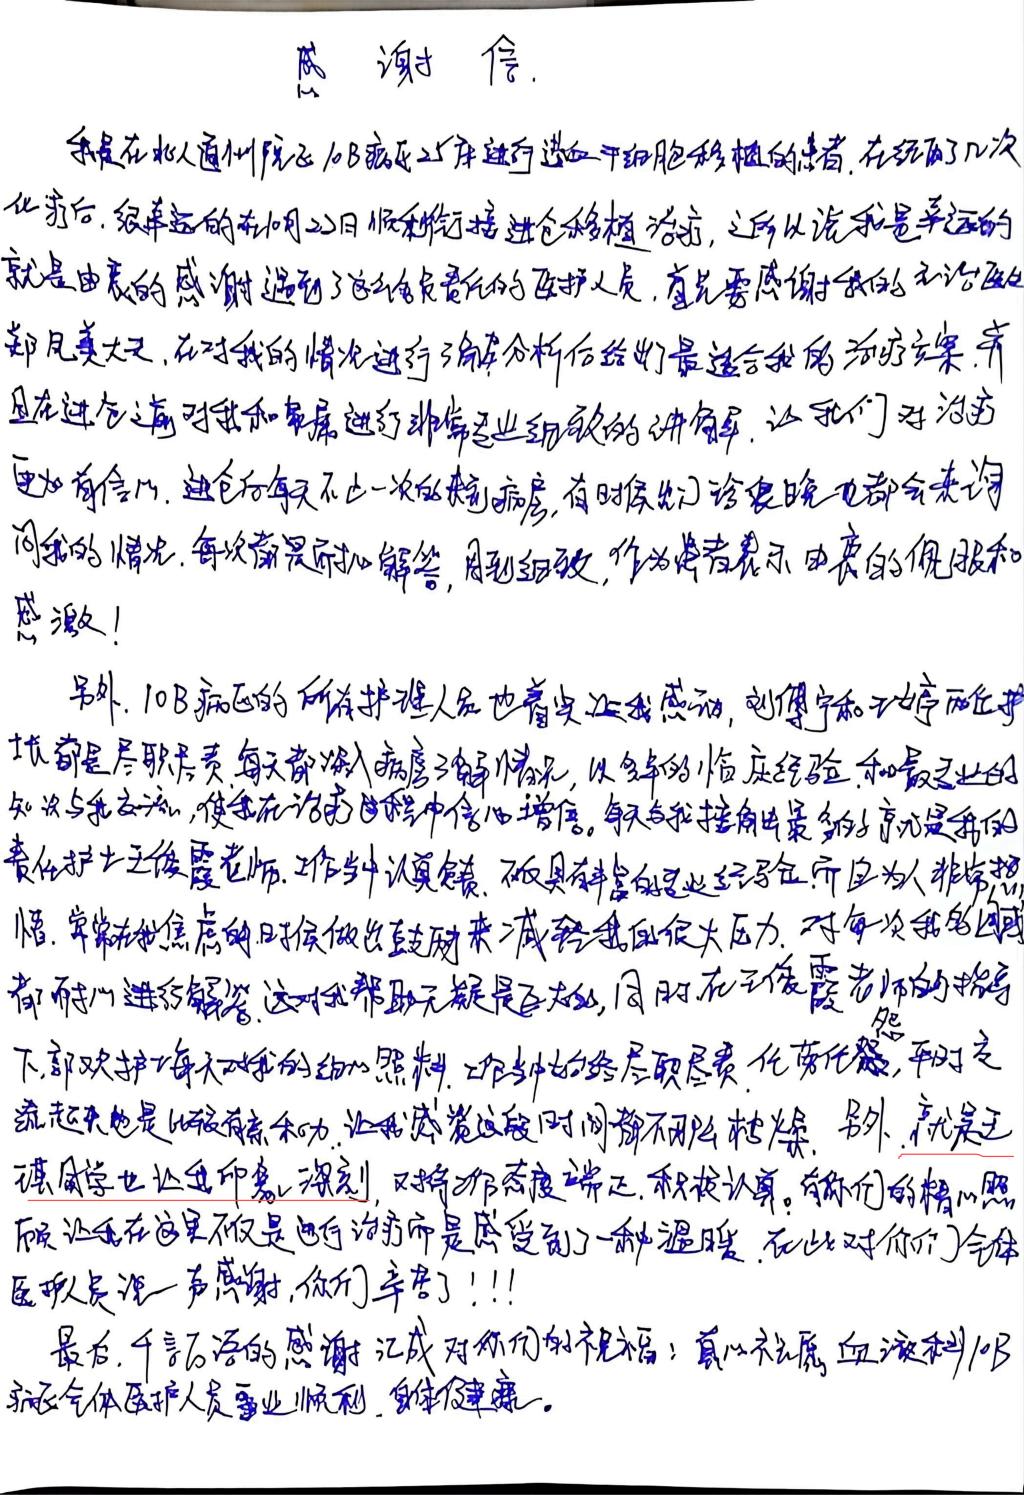 感谢信.
我是在北人通州院区10B病区25床进行造血干细胞移植的患者,在经历了几次
化疗后,很幸运的在10月22日顺利衔接进仓移植治疗,之所以说我是幸运的
就是由衷的感谢遇到了这些负责任的医护人员,首先要感谢我的主治医生
郑凤美大夫,在对我的情况进行了解分析后给出了最适合我的治疗方案,并
且在进仓之前对我和家属进行非常专业细致的讲解,让我们对治疗
更加有信心,进仓后每天不止一次的来到病房,有时候出门诊很晚也都会来询
问我的情况,每次都是耐心解答,周到细致,作为患者表示由衷的佩服和
感激!
另外,10B病区的所有护理人员也着实让我感动,刘博宁和王婷两位护
士长都是尽职尽责,每天都深入病房了解情况,以多年的临床经验和最专业的
知识与我交流,使我在治疗过程中信心增倍。每天与我接触最多的就是我的
责任护士王俊霞老师,工作当中认真负责,不仅具有丰富的专业经验,而且为人非常热
情,常常在我焦虑的时候做出鼓励来减轻我的很大压力,对每次我的困惑
都耐心进行解答,这对我帮助无疑是巨大的,同时,在王俊霞老师的指导
下,郭欢护士每天对我的细心照料,工作当中始终尽职尽责,任劳任怨,平时交
流起来也是比较有亲和力,让我感觉这段时间都不那么枯燥,另外,就是王
琪同学也让我印象深刻,对待工作态度端正,积极认真。有你们的精心照
顾让我在这里不仅是进行治疗而是感受到了一种温暖,在此对你们全体
医护人员说一声感谢,你们辛苦了!!!
最后,千言万语的感谢汇成对你们的祝福:真心祝愿血液科10B
病区全体医护人员事业顺利,身体健康。